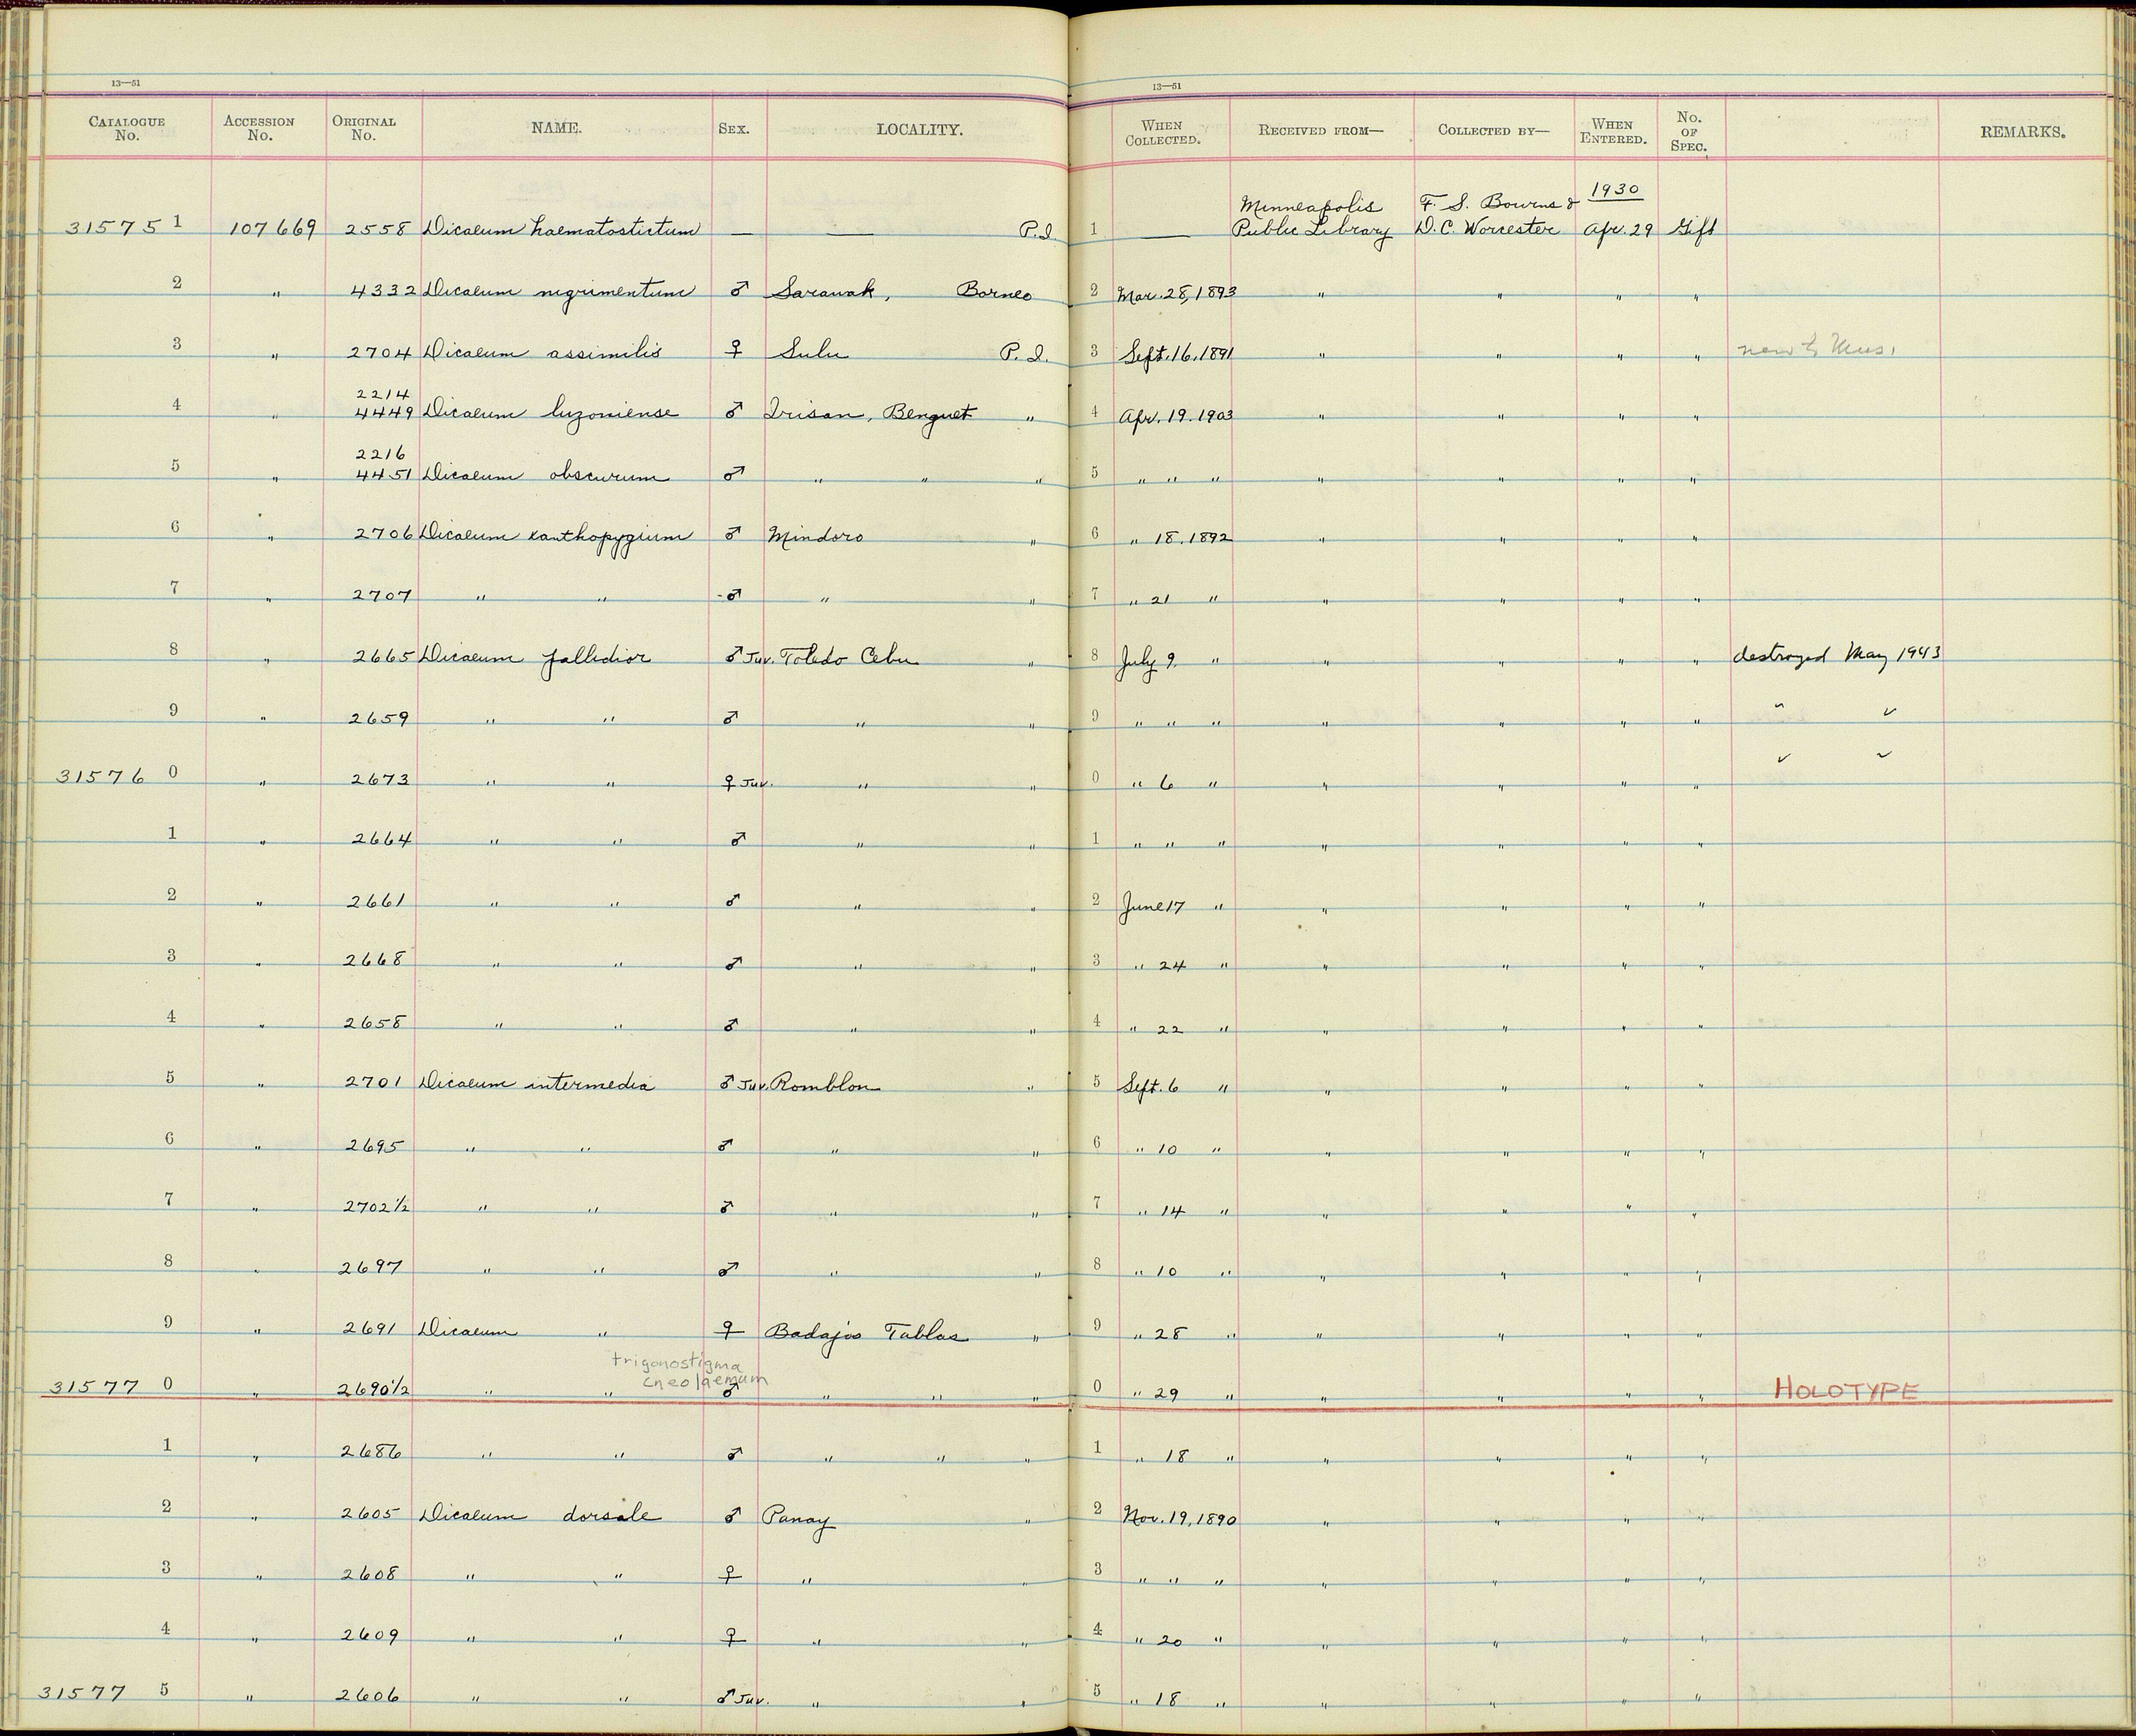 13—51 13—51
CATALOGUE No. ACCESSION No. ORIGINAL No. NAME. SEX. LOCALITY. WHEN COLLECTED. RECEIVED FROM— COLLECTED BY— WHEN ENTERED. No. OF SPEC. REMARKS.
31575 1 107669 2558 Dicaeum haematostictum — — P.I. 1 — Minneapolis Public Library F. S. Bourns & D. C. Worcester 1930 Apr. 29 Gift
2 " 4332 Dicaeum nigrimentum ♂ Sarawak, Borneo 2 Mar. 28, 1893 " " " "
3 " 2704 Dicaeum assimilis ♀ Sulu P. I. 3 Sept. 16, 1891 " " " " new to Mus.
4 " 2214 4449 Dicaeum luzoniense ♂ Irisan, Benguet " 4 Apr. 19. 1903 " " " "
5 " 2216 4451 Dicaeum obscurum ♂ " " " 5 " " " " " " "
6 " 2706 Dicaeum xanthopygium ♂ Mindoro " 6 " 18. 1892 " " " "
7 " 2707 " " ♂ " " 7 " 21 " " " " "
8 " 2665 Dicaeum pallidior ♂ Juv. Toledo Cebu " 8 July 9, " " " " " destroyed May 1943
9 " 2659 " " ♂ " " 9 " " " " " " " " "
31576 0 " 2673 " " ♀ Juv. " " 0 " 6 " " " " " " "
1 " 2664 " " ♂ " " 1 " " " " " " "
2 " 2661 " " ♂ " " 2 June 17 " " " " "
3 " 2668 " " ♂ " " 3 " 24 " " " " "
4 " 2658 " " ♂ " " 4 " 22 " " " " "
5 " 2701 Dicaeum intermedia ♂ Juv. Romblon " 5 Sept. 6 " " " " "
6 " 2695 " " ♂ " " 6 " 10 " " " " "
7 " 2702½ " " ♂ " " 7 " 14 " " " " "
8 " 2697 " " ♂ " " 8 " 10 " " " " "
9 " 2691 Dicaeum " ♀ Badajos Tablas " 9 " 28 " " " " "
trigonostigma
cneolaemum
31577 0 " 2690½ " " ♂ " " " 0 " 29 " " " " " HOLOTYPE
1 " 2686 " " ♂ " " " 1 " 18 " " " " "
2 " 2605 Dicaeum dorsale ♂ Panay " 2 Nov. 19, 1890 " " " "
3 " 2608 " " ♀ " " 3 " " " " " " "
4 " 2609 " " ♀ " " 4 " 20 " " " " "
31577 5 " 2606 " " ♂ Juv. " " 5 " 18 " " " " "